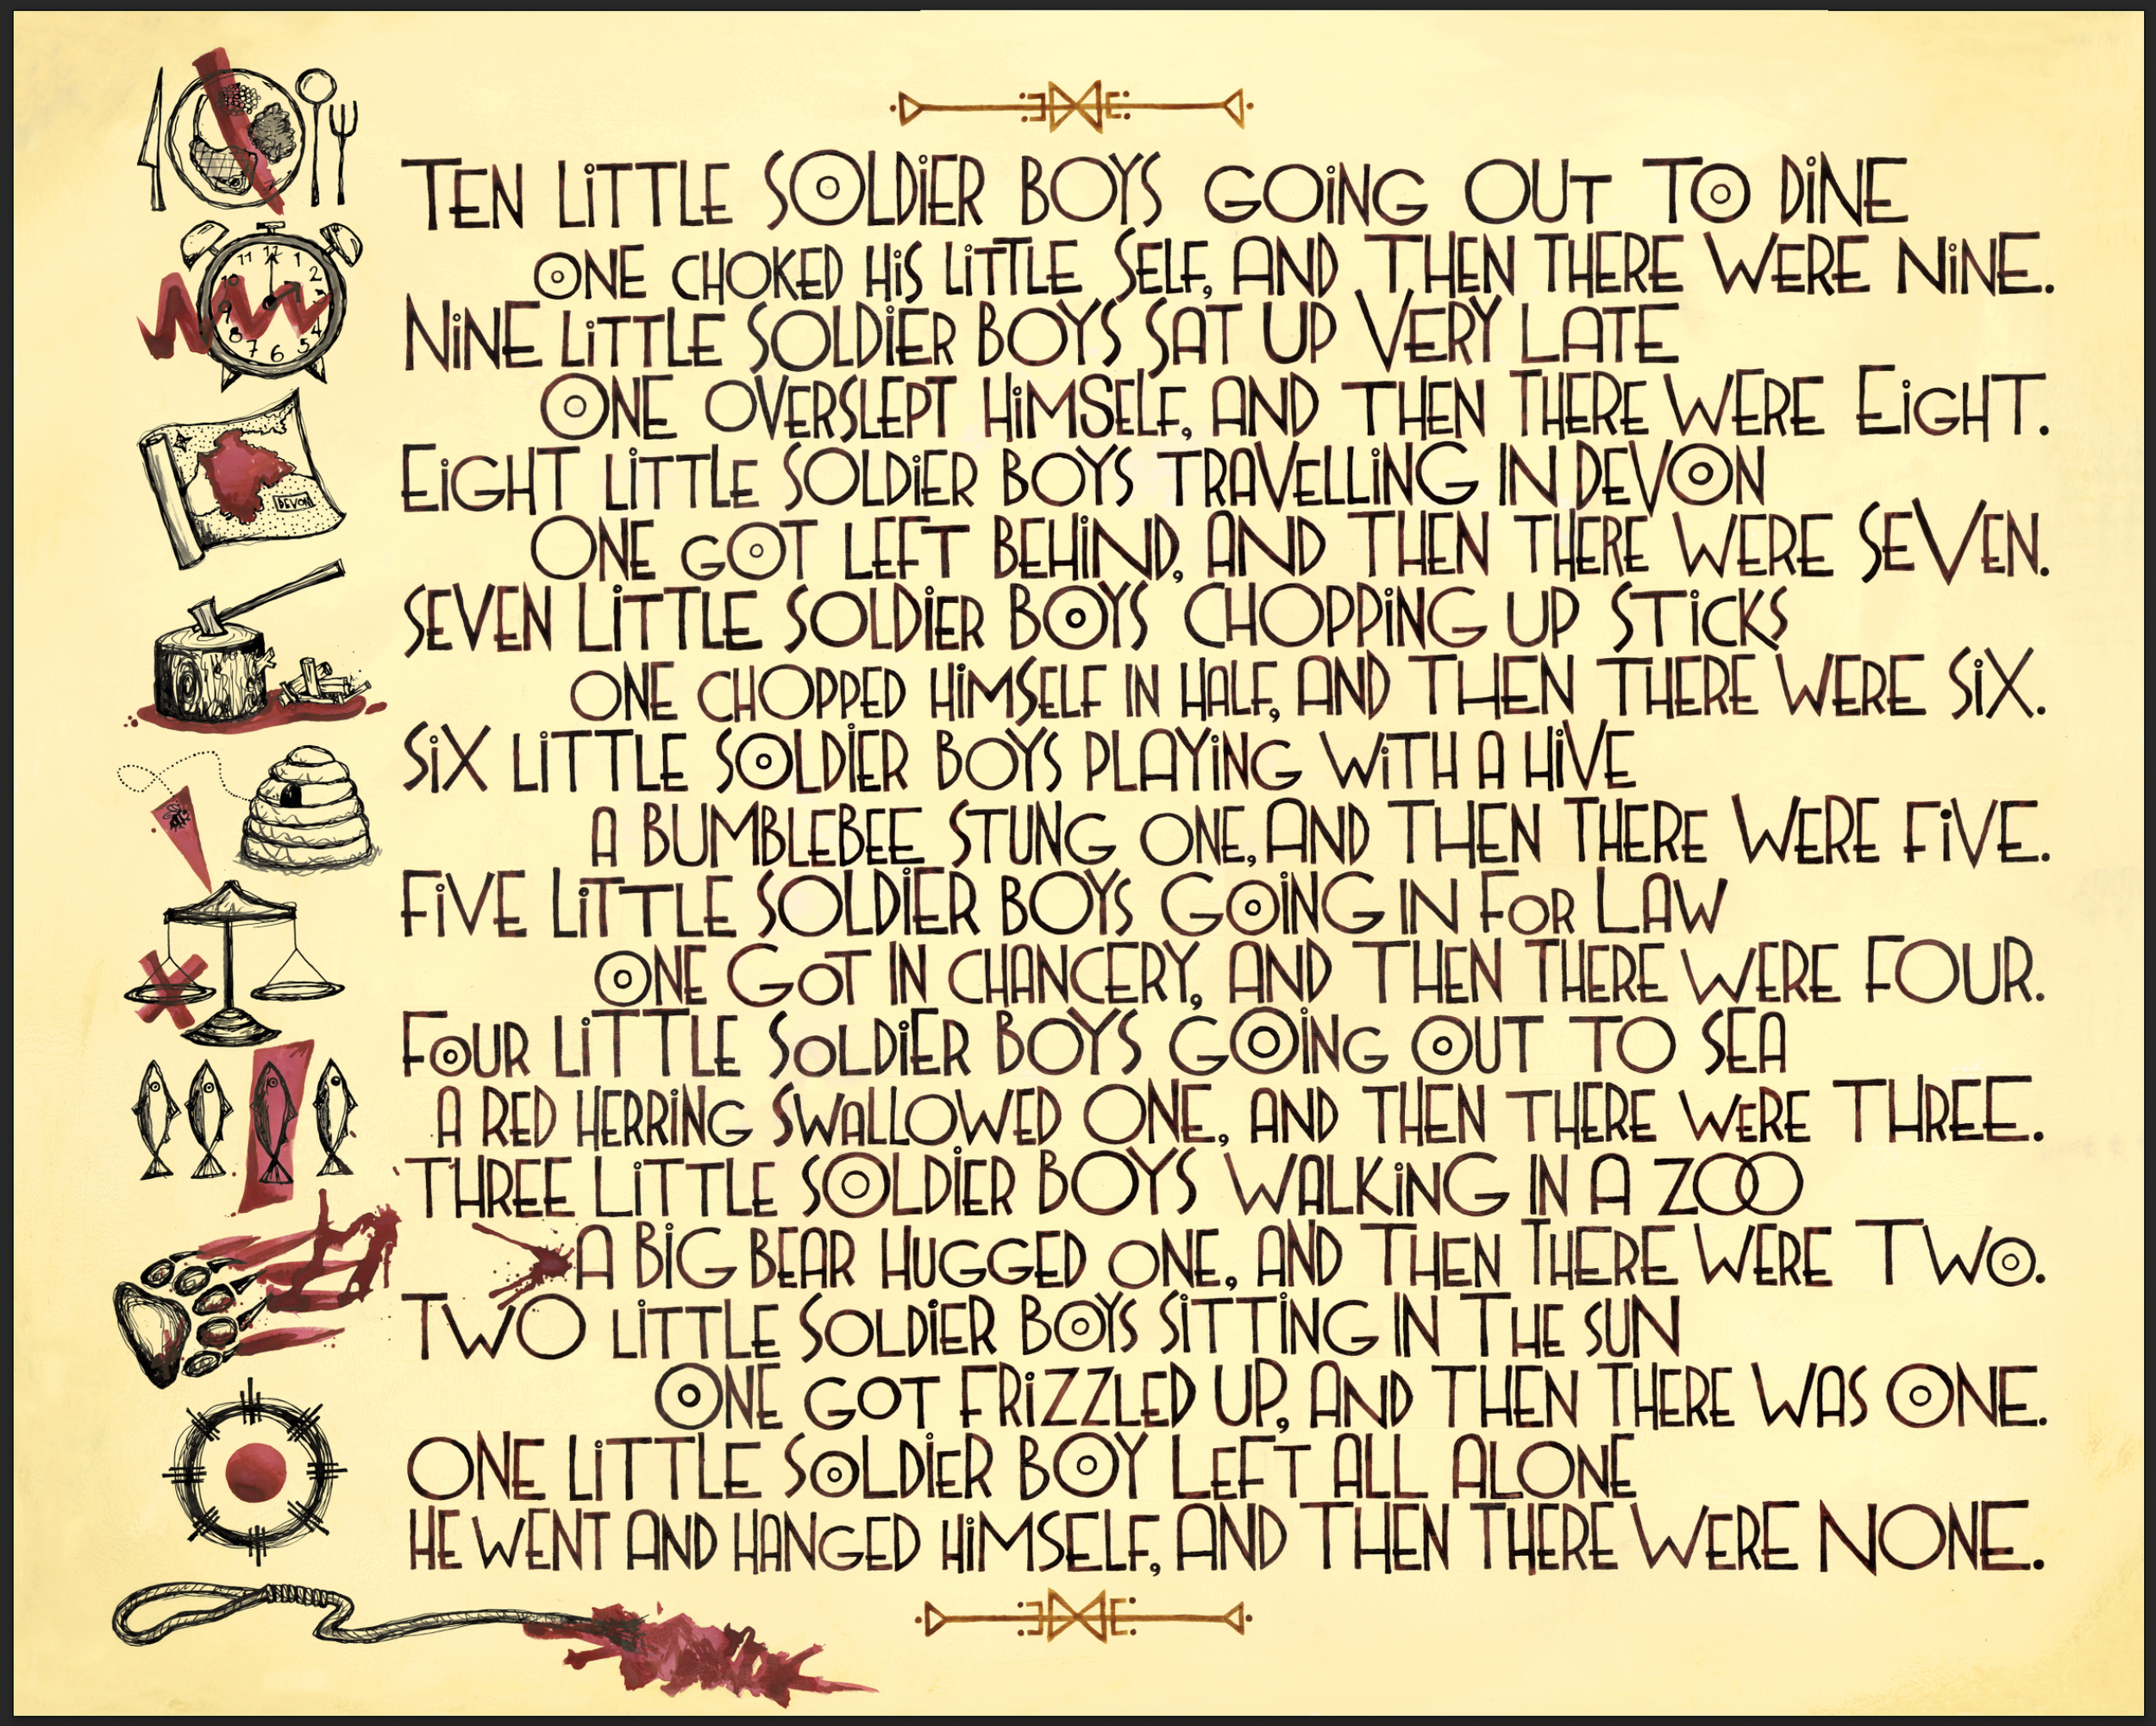 11 12 1
10 2
9 3
8 4
7 6 5
DEVON
TEN LITTLE SOLDIER BOYS GOING OUT TO DINE
ONE CHOKED HIS LITTLE SELF, AND THEN THERE WERE NINE.
NINE LITTLE SOLDIER BOYS SAT UP VERY LATE
ONE OVERSLEPT HIMSELF, AND THEN THERE WERE EIGHT.
EIGHT LITTLE SOLDIER BOYS TRAVELLING IN DEVON
ONE GOT LEFT BEHIND, AND THEN THERE WERE SEVEN.
SEVEN LITTLE SOLDIER BOYS CHOPPING UP STICKS
ONE CHOPPED HIMSELF IN HALF, AND THEN THERE WERE SIX.
SIX LITTLE SOLDIER BOYS PLAYING WITH A HIVE
A BUMBLEBEE STUNG ONE, AND THEN THERE WERE FIVE.
FIVE LITTLE SOLDIER BOYS GOING IN FOR LAW
ONE GOT IN CHANCERY, AND THEN THERE WERE FOUR.
FOUR LITTLE SOLDIER BOYS GOING OUT TO SEA
A RED HERRING SWALLOWED ONE, AND THEN THERE WERE THREE.
THREE LITTLE SOLDIER BOYS WALKING IN A ZOO
A BIG BEAR HUGGED ONE, AND THEN THERE WERE TWO.
TWO LITTLE SOLDIER BOYS SITTING IN THE SUN
ONE GOT FRIZZLED UP, AND THEN THERE WAS ONE.
ONE LITTLE SOLDIER BOY LEFT ALL ALONE
HE WENT AND HANGED HIMSELF, AND THEN THERE WERE NONE.